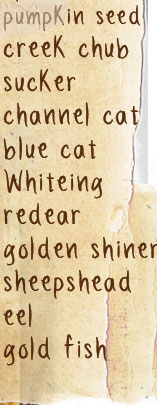 pumpkin seed
creek chub
sucker
channel cat
blue cat
Whiteing
redear
golden shiner
sheepshead
eel
gold fish